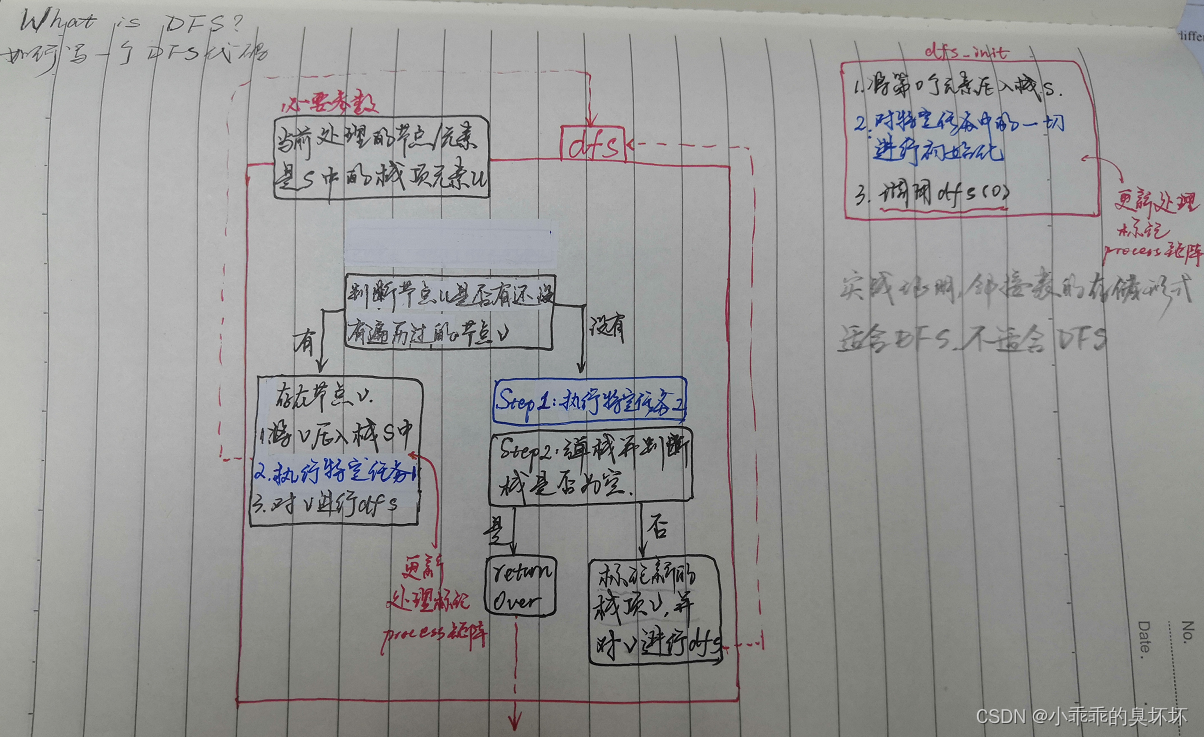 What is DFS?
如何写一个DFS代码
必要参数
当前处理的节点/元素
是S中的栈顶元素u
dfs
判断节点u是否有还没
有遍历过的节点v
有
没有
存在节点v.
1.将v压入栈S中
2.执行特定任务1
3.对v进行dfs
Step1:执行特定任务2
Step2:退栈并判断
栈是否为空.
是
否
return
Over
标记新的
栈顶v,并
对v进行dfs
更新
处理标记
process矩阵
dfs_init
1.将第0个元素压入栈S.
2.对特定任务中的一切
进行初始化
3.调用dfs(0)
更新处理
标记
process矩阵
实践证明,邻接表的存储形式
适合DFS,不适合DFS
diffe
No.
Date.
CSDN @小乖乖的臭坏坏